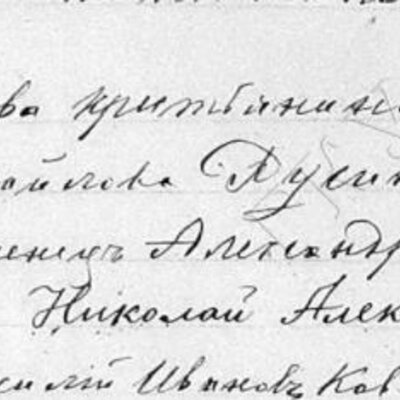 ва крестьянин
айлова Русин
ченець Александр
Николай Алек
силій Ивановъ Ков